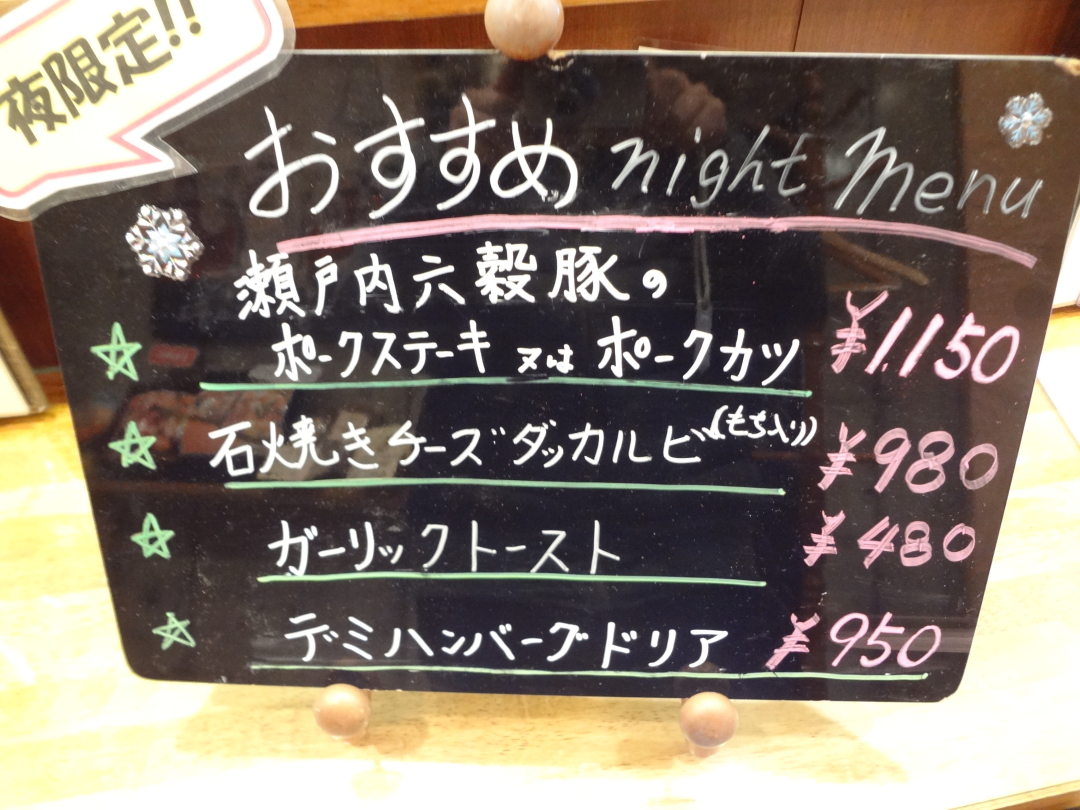 夜限定!!
おすすめ night menu
瀬戸内六穀豚の
ポークステーキ 又は ポークカツ ¥1.150
石焼きチーズダッカルビ(もち入り) ¥980
ガーリックトースト ¥480
デミハンバーグドリア ¥950